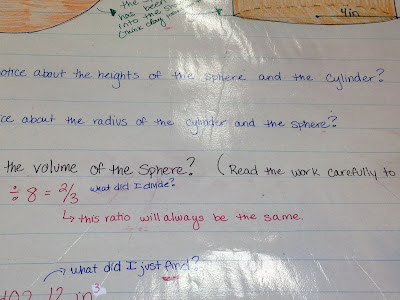 the
has been
into the
(think clay
4in
otice about the heights of the sphere and the cylinder?
ice about the radius of the cylinder and the sphere?
the volume of the sphere? (Read the work carefully to
÷ 8 = 2/3 what did I divide?
↳ this ratio will always be the same.
what did I just find?
in³